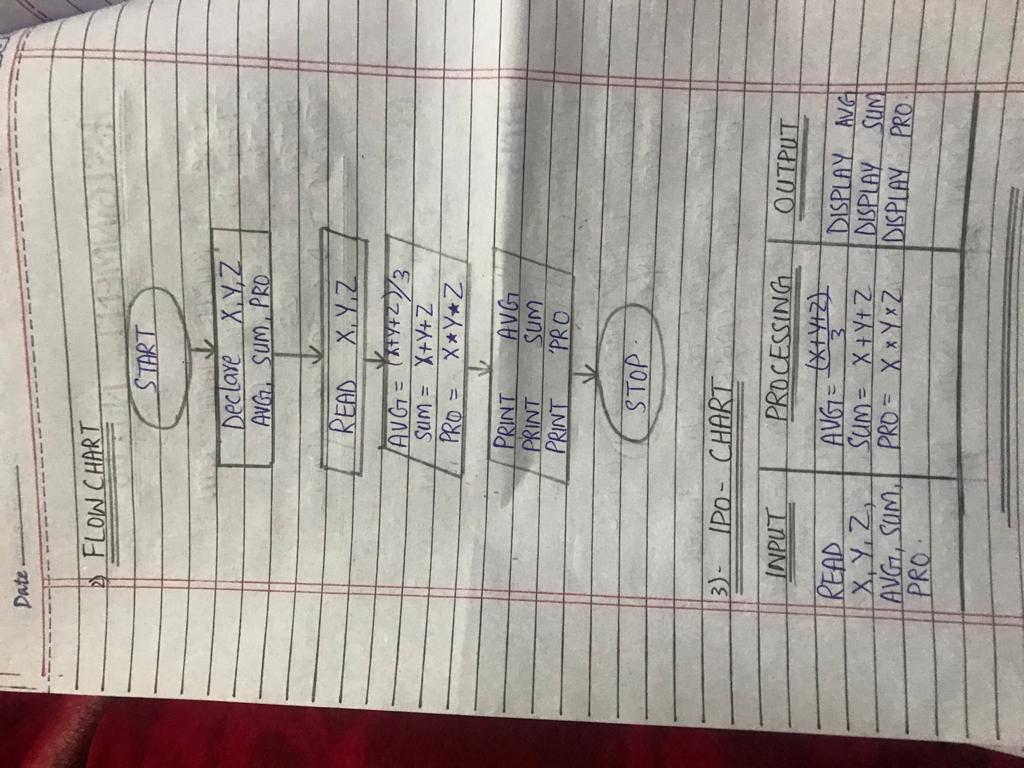 Date
2) FLOW CHART
START
Declare X,Y,Z
AVG, SUM, PRO
READ X,Y,Z
AVG = (X+Y+Z)/3
SUM = X+Y+Z
PRO = X*Y*Z
PRINT AVG
PRINT SUM
PRINT PRO
STOP.
3)- IPO- CHART
INPUT PROCESSING OUTPUT
READ AVG = (X+Y+Z)/3 DISPLAY AVG
X, Y, Z, SUM = X+Y+Z DISPLAY SUM
AVG, SUM, PRO = X*Y*Z DISPLAY PRO.
PRO.